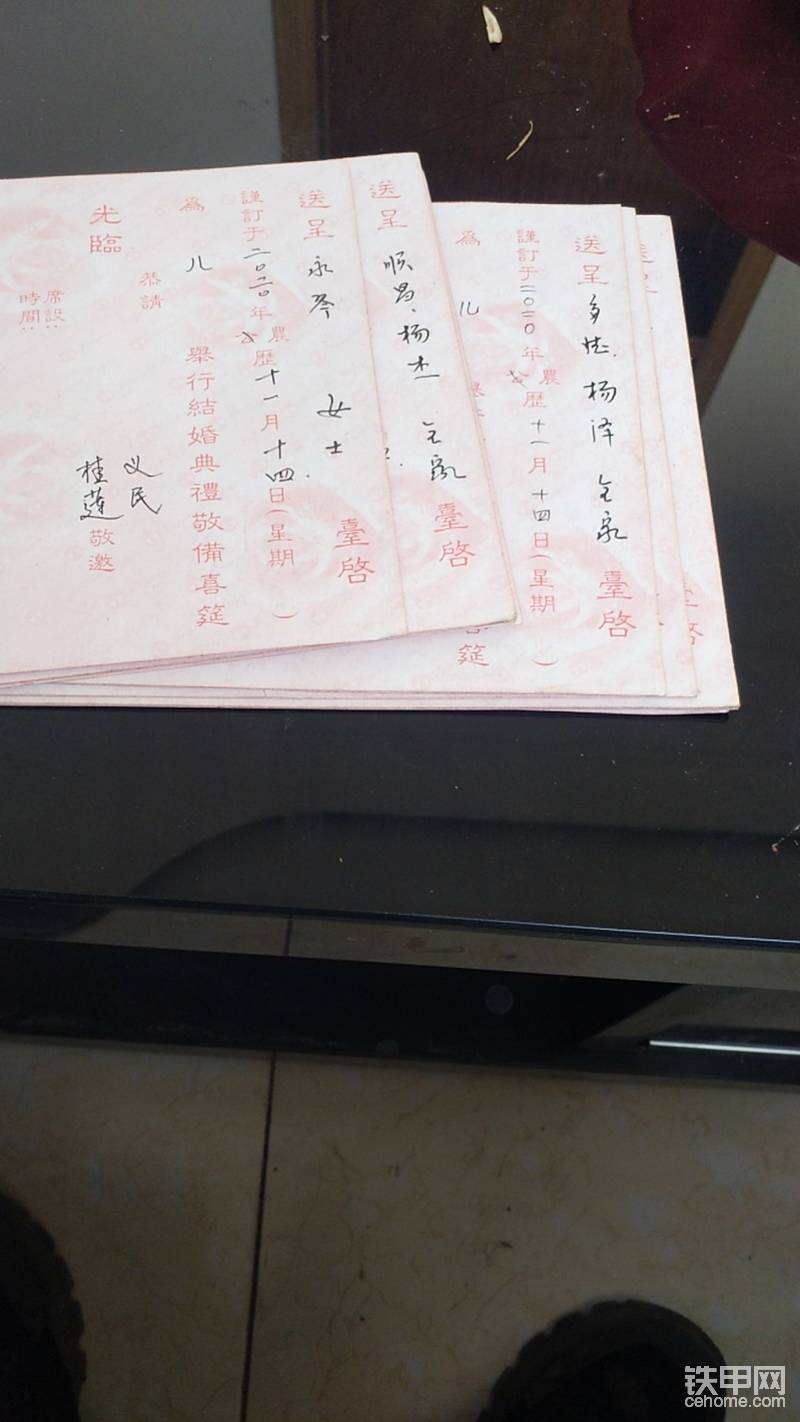 送呈 永琴 女士 臺啓
謹訂于二〇二〇年農歷十一月十四日(星期 )
為 儿 舉行結婚典禮敬備喜筵
恭請
光臨
义民
桂莲 敬邀
席設:
時間:
送呈 顺昌、杨杰 全家 臺啓
送呈 杨泽 全家 臺啓
謹訂于二〇二〇年農歷十一月十四日(星期 )
為 儿
筵
铁甲网
cehome.com